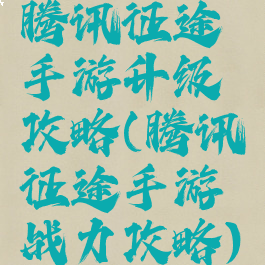 腾讯征途
手游升级
攻略(腾讯
征途手游
战力攻略)